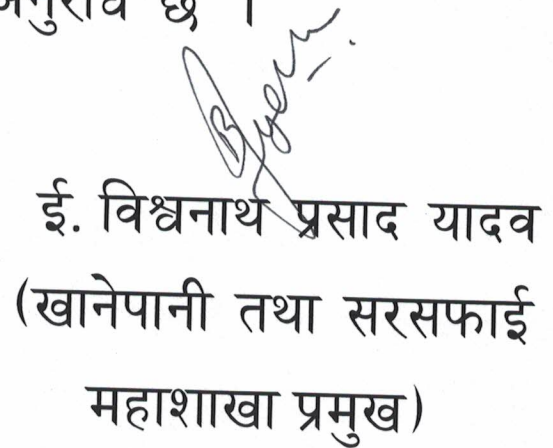 अनुरोध छ ।
ई. विश्वनाथ प्रसाद यादव
(खानेपानी तथा सरसफाई
महाशाखा प्रमुख)